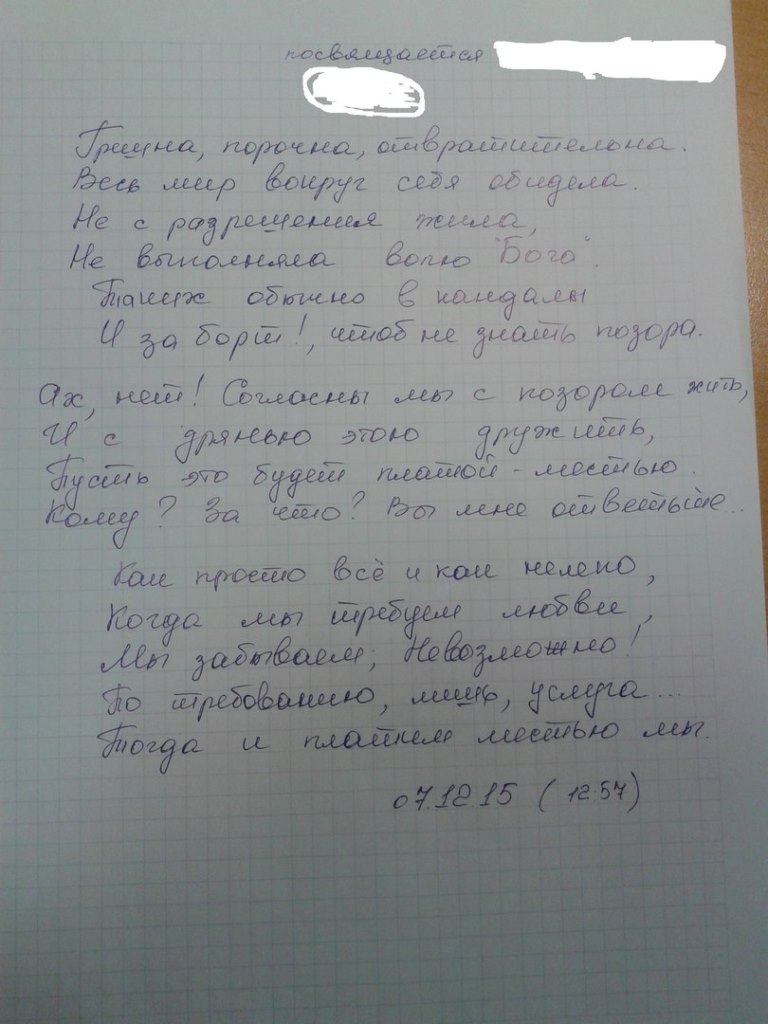 посвящается
Грешна, порочна, отвратительна.
Весь мир вокруг себя обидела.
Не с разрешения жила,
Не выполняла волю "Бога".
Таких обычно в кандалы
И за борт!, чтоб не знать позора.
Ах, нет! Согласны мы с позором жить,
И с дрянью этою дружить,
Пусть это будет платой - местью.
Кому? За что? Вы мне ответьте...
Как просто всё и как нелепо,
Когда мы требуем любви,
Мы забываем, Невозможно!
По требованию, лишь, услуга...
Тогда и платим местью мы.
07.12.15 (12:57)